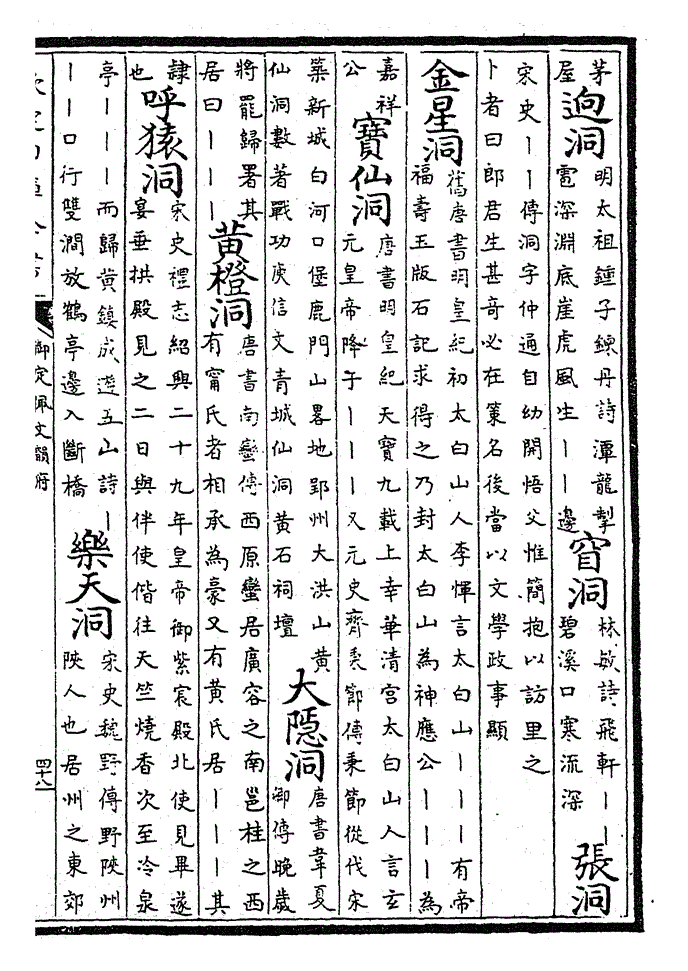 茅
屋
逈洞
明太祖鍾子鍊丹詩潭龍掣
雹深淵底崖虎風生丨丨邊
窅洞
林敏詩飛軒丨丨
碧溪口寒流深
張洞
宋史丨丨傳洞字仲通自幼開悟父惟簡抱以訪里之
卜者曰郎君生甚奇必在䇿名後當以文學政事顯
金星洞
舊唐書明皇紀初太白山人李惲言太白山丨丨丨有帝
福壽玉版石記求得之乃封太白山為神應公丨丨丨為
嘉祥
公
寶仙洞
唐書明皇紀天寶九載上幸華清宮太白山人言玄
元皇帝降于丨丨丨又元史齊秉節傳秉節從伐宋
築新城白河口堡鹿門山畧地郢州大洪山黄
仙洞數著戰功庾信文青城仙洞黄石祠壇
大隱洞
唐書韋夏
卿傳晚歲
將罷歸署其
居曰丨丨丨
黄橙洞
唐書南蠻傳西原蠻居廣容之南邕桂之西
有甯氏者相承為豪又有黄氏居丨丨丨其
隸
也
呼猿洞
宋史禮志紹興二十九年皇帝御紫宸殿北使見畢遂
宴垂拱殿見之二日與伴使偕往天竺燒香次至冷泉
亭丨丨丨而歸黄鎮成遊五山詩丨
丨丨口行雙澗放鶴亭邊入斷橋
樂天洞
宋史魏野傳野陝州
陝人也居州之東郊
欽定四庫全書
御定佩文韻府
四十八